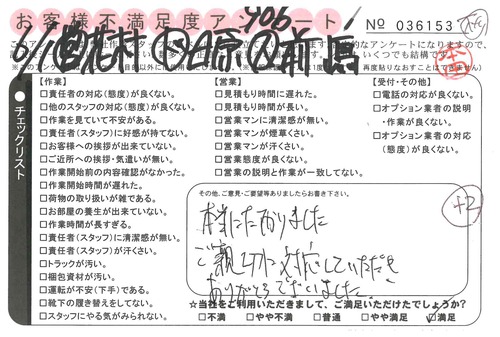 お客様不満足度アンケート
№ 036153
チェックリスト
【作業】
□責任者の対応(態度)が良くない。
□他のスタッフの対応(態度)が良くない。
□作業を見ていて不安がある。
□責任者(スタッフ)に好感が持てない。
□お客様への挨拶が出来ていない。
□ご近所への挨拶・気遣いが無い。
□作業開始前の内容確認がなかった。
□作業開始時間が遅れた。
□荷物の取り扱いが雑である。
□お部屋の養生が出来ていない。
□作業時間が長すぎる。
□責任者(スタッフ)に清潔感が無い。
□責任者(スタッフ)が汗くさい。
□トラックが汚い。
□梱包資材が汚い。
□運転が不安(下手)である。
□靴下の履き替えをしてない。
□スタッフにやる気がみられない。
【営業】
□見積もり時間に遅れた。
□見積もり時間が長い。
□営業マンに清潔感が無い。
□営業マンが煙草くさい。
□営業マンが汗くさい。
□営業態度が良くない。
□営業の説明と作業が一致してない。
【受付・その他】
□電話の対応が良くない。
□オプション業者の説明
・作業が良くない。
□オプション業者の対応
(態度)が良くない。
その他、ご意見・ご要望等ありましたらお書き下さい。
本当にたすかりました
ご親切に対応していただき
ありがとうございました。
☆当社をご利用いただきまして、ご満足いただけたでしょうか?
□不満 □やや不満 □普通 □やや満足 ☑満足